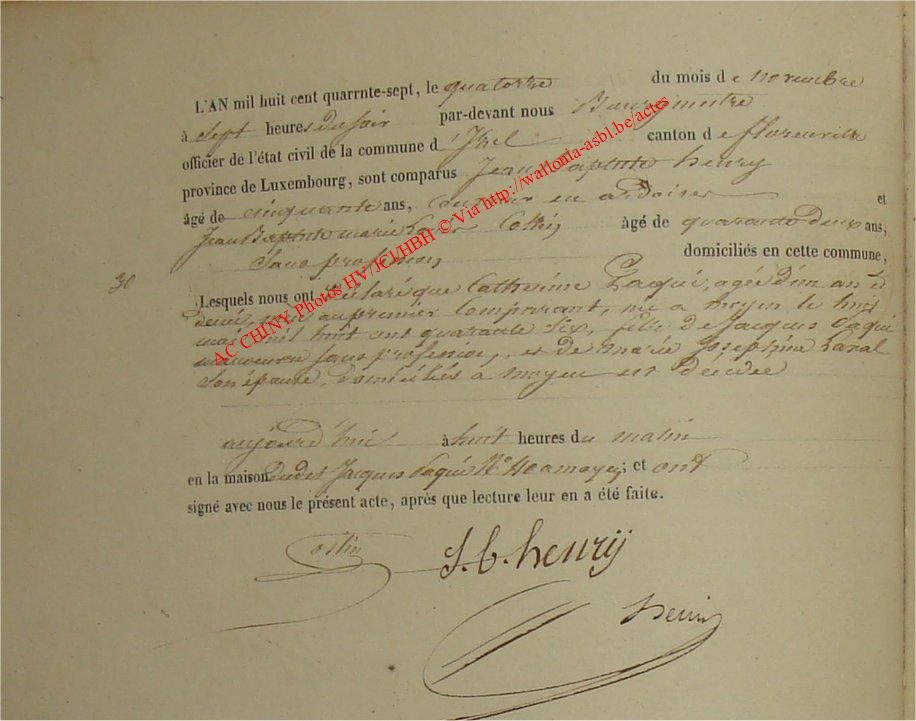 L'AN mil huit cent quarrnte-sept, le quatorze du mois d e novembre
à sept heures du soir par-devant nous Bourgmestre
officier de l'état civil de la commune d' Izel canton d e florenville
province de Luxembourg, sont comparus Jean Baptiste henry
âgé de cinquante ans, couvreur en ardoises et
Jean Baptiste marie Louis âgé de quarante deux ans,
Sans profession domiciliés en cette commune,
30
Lesquels nous ont déclaré que Catherine Laqui, agée d'un an et
demi, au premier Comparant, née a moyen le huit
mai mil huit cent quarante six, fille de Jacques Laqui
manoeuvre sans profession, et de marie Joséphine
Son épouse, domiciliés a moyen est décédée
aujourd'hui à huit heures du matin
en la maison dudit Jacques Laqui N° a moyen ; et ont
signé avec nous le présent acte, après que lecture leur en a été faite.
J. b. henrÿ
AC CHINY Photos HV/JCL/HBH © Via http://wallonia-asbl.be/actes